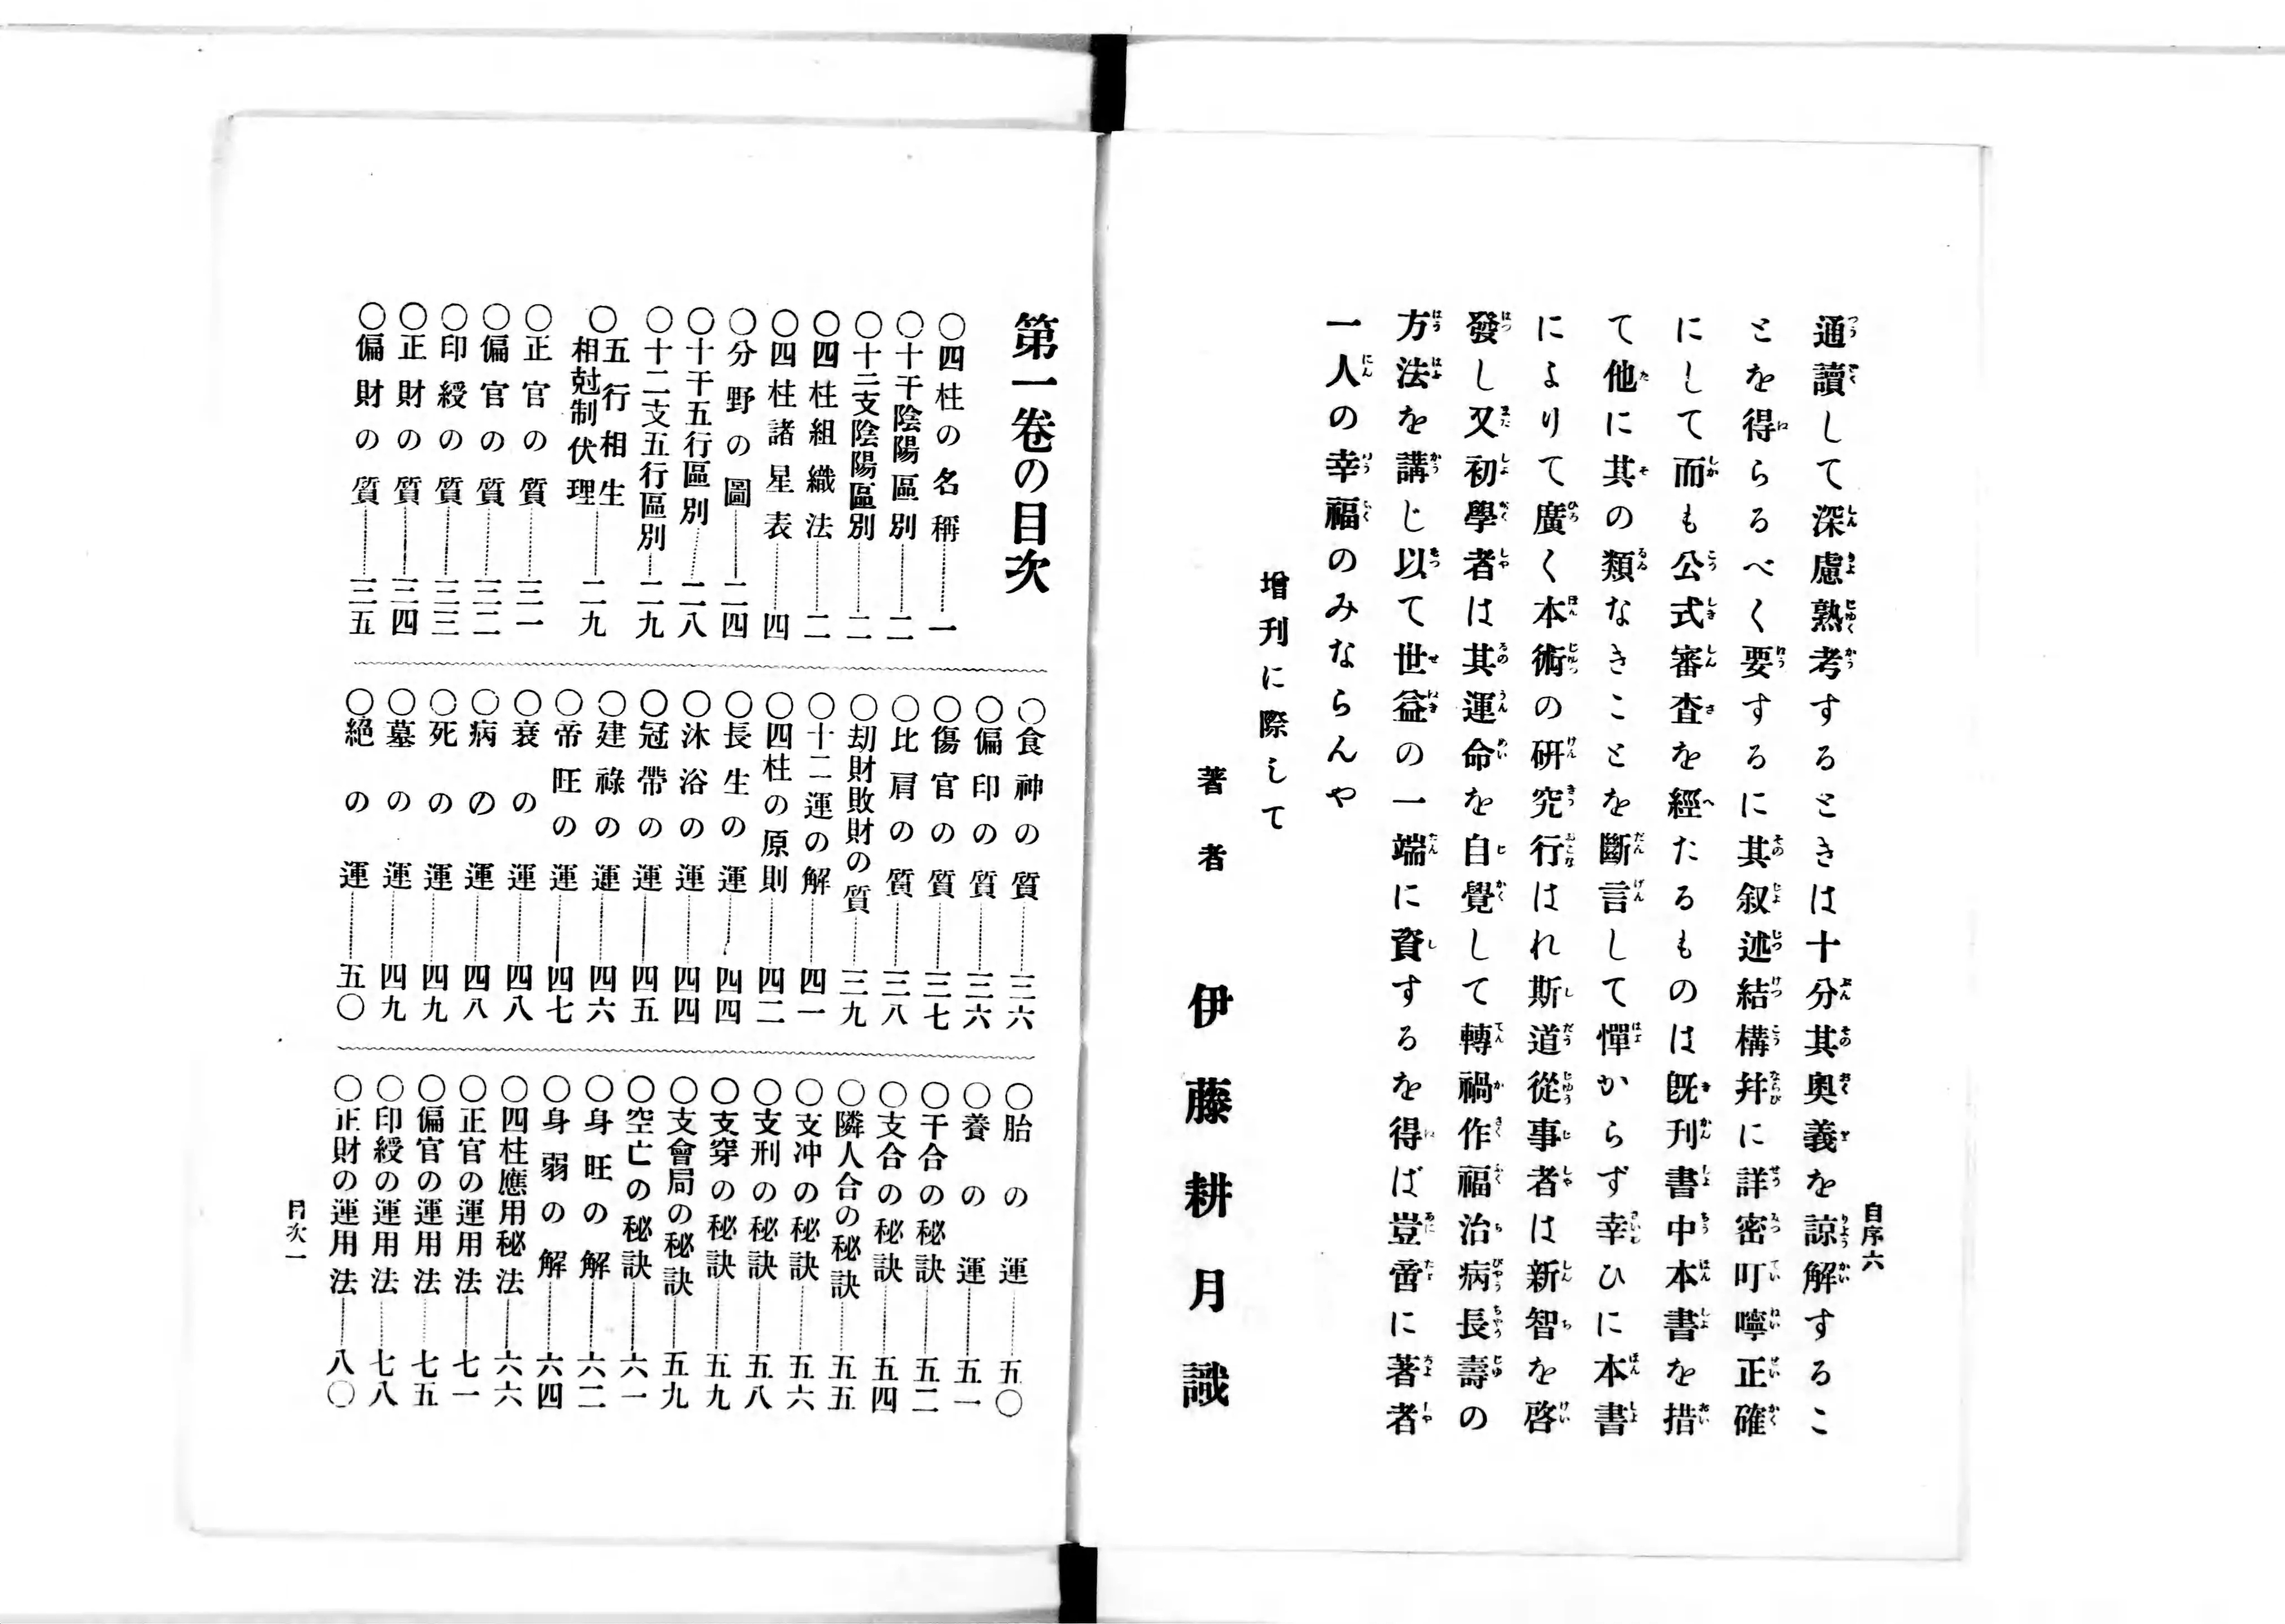 自序六
通讀して深慮熟考するときは十分其奧義を諒解するこ
とを得らるべく要するに其叙述結構幷に詳密叮嚀正確
にして而も公式審査を經たるものは旣刊書中本書を措
て他に其の類なきことを斷言して憚からず幸ひに本書
によりて廣く本術の硏究行はれ斯道從事者は新智を啓
發し又初學者は其運命を自覺して轉禍作福治病長壽の
方法を講じ以て世益の一端に資するを得ば豈啻に著者
一人の幸福のみならんや
增刊に際して
著者 伊藤耕月識
第一卷の目次
〇四柱の名稱……一
〇十干陰陽區別……二
〇十二支陰陽區別……二
〇四柱組織法……二
〇四柱諸星表……四
〇分野の圖……二四
〇十干五行區別……二八
〇十二支五行區別……二九
〇五行相生相尅制伏理……二九
〇正官の質……三一
〇偏官の質……三二
〇印綬の質……三三
〇正財の質……三四
〇偏財の質……三五
〇食神の質……三六
〇偏印の質……三六
〇傷官の質……三七
〇比肩の質……三八
〇劫財敗財の質……三九
〇十二運の解……四一
〇四柱の原則……四二
〇長生の運……四四
〇沐浴の運……四四
〇冠帶の運……四五
〇建祿の運……四六
〇帝旺の運……四七
〇衰の運……四八
〇病の運……四八
〇死の運……四九
〇墓の運……四九
〇絕の運……五〇
〇胎の運……五〇
〇養の運……五一
〇干合の秘訣……五二
〇支合の秘訣……五四
〇隣人合の秘訣……五五
〇支冲の秘訣……五六
〇支刑の秘訣……五八
〇支穿の秘訣……五九
〇支會局の秘訣……五九
〇空亡の秘訣……六一
〇身旺の解……六二
〇身弱の解……六四
〇四柱應用秘法……六六
〇正官の運用法……七一
〇偏官の運用法……七五
〇印綬の運用法……七八
〇正財の運用法……八〇
目次一